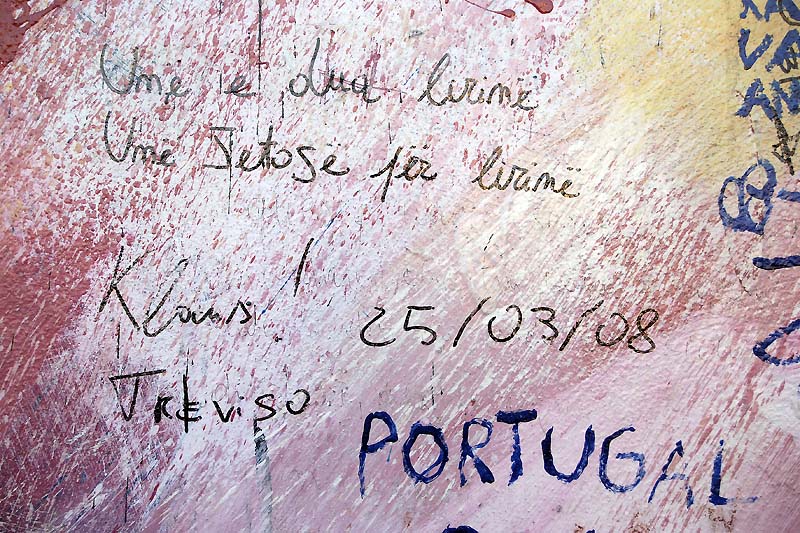 Unë e dua lirinë
Unë Jetosë për lirinë
Klaus
25/03/08
Treviso
PORTUGAL